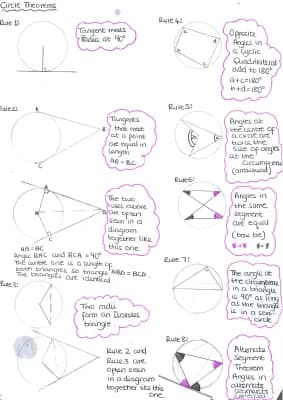 Circle Theorems
Rule 1:
Tangent meets
Radius at 90°
Rule 2:
A
B
C
Tangents
that meet
at a point
are equal in
length
AB = BC
A
B
C
The two
rules above
are often
seen in a
diagram
together like
this one.
AB = BC
Angle BAC and BCA = 90°
The centre line is a length of
both triangles so triangle ABD = BCD.
The triangles are identical
Rule 3:
Two radii
form an Isosceles
triangle.
Rule 2 and
Rule 3 are
often seen
in a diagram
together like this
one.
Rule 4:
Opposite
Angles in
a Cyclic
Quadrilateral
add to 180°
a+c=180°
b+d=180°
Rule 5:
Angles at
the centre of
a circle are
twice the
size of angles
at the
circumference
(arrowhead)
Rule 6:
Angles in
the same
segment
are equal
(bow tie)
Rule 7:
The angle at
the circumference
in a triangle
is 90° as long
as the triangle
is in a semi-
circle
Rule 8:
Alternate
Segment
Theorem
Angles in
alternate
segments
are equal